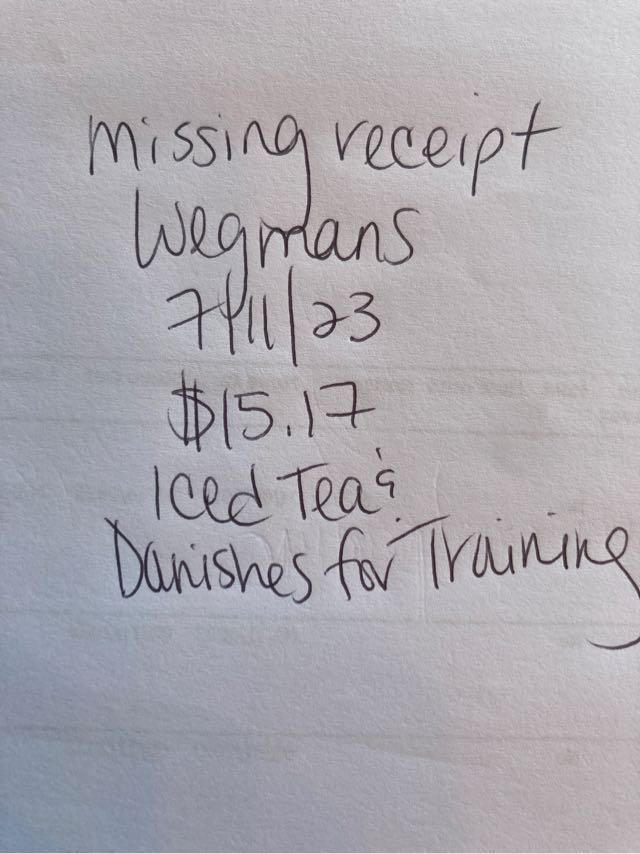 missing receipt
Wegmans
7/11/23
$15.17
Iced Tea &
Danishes for Training